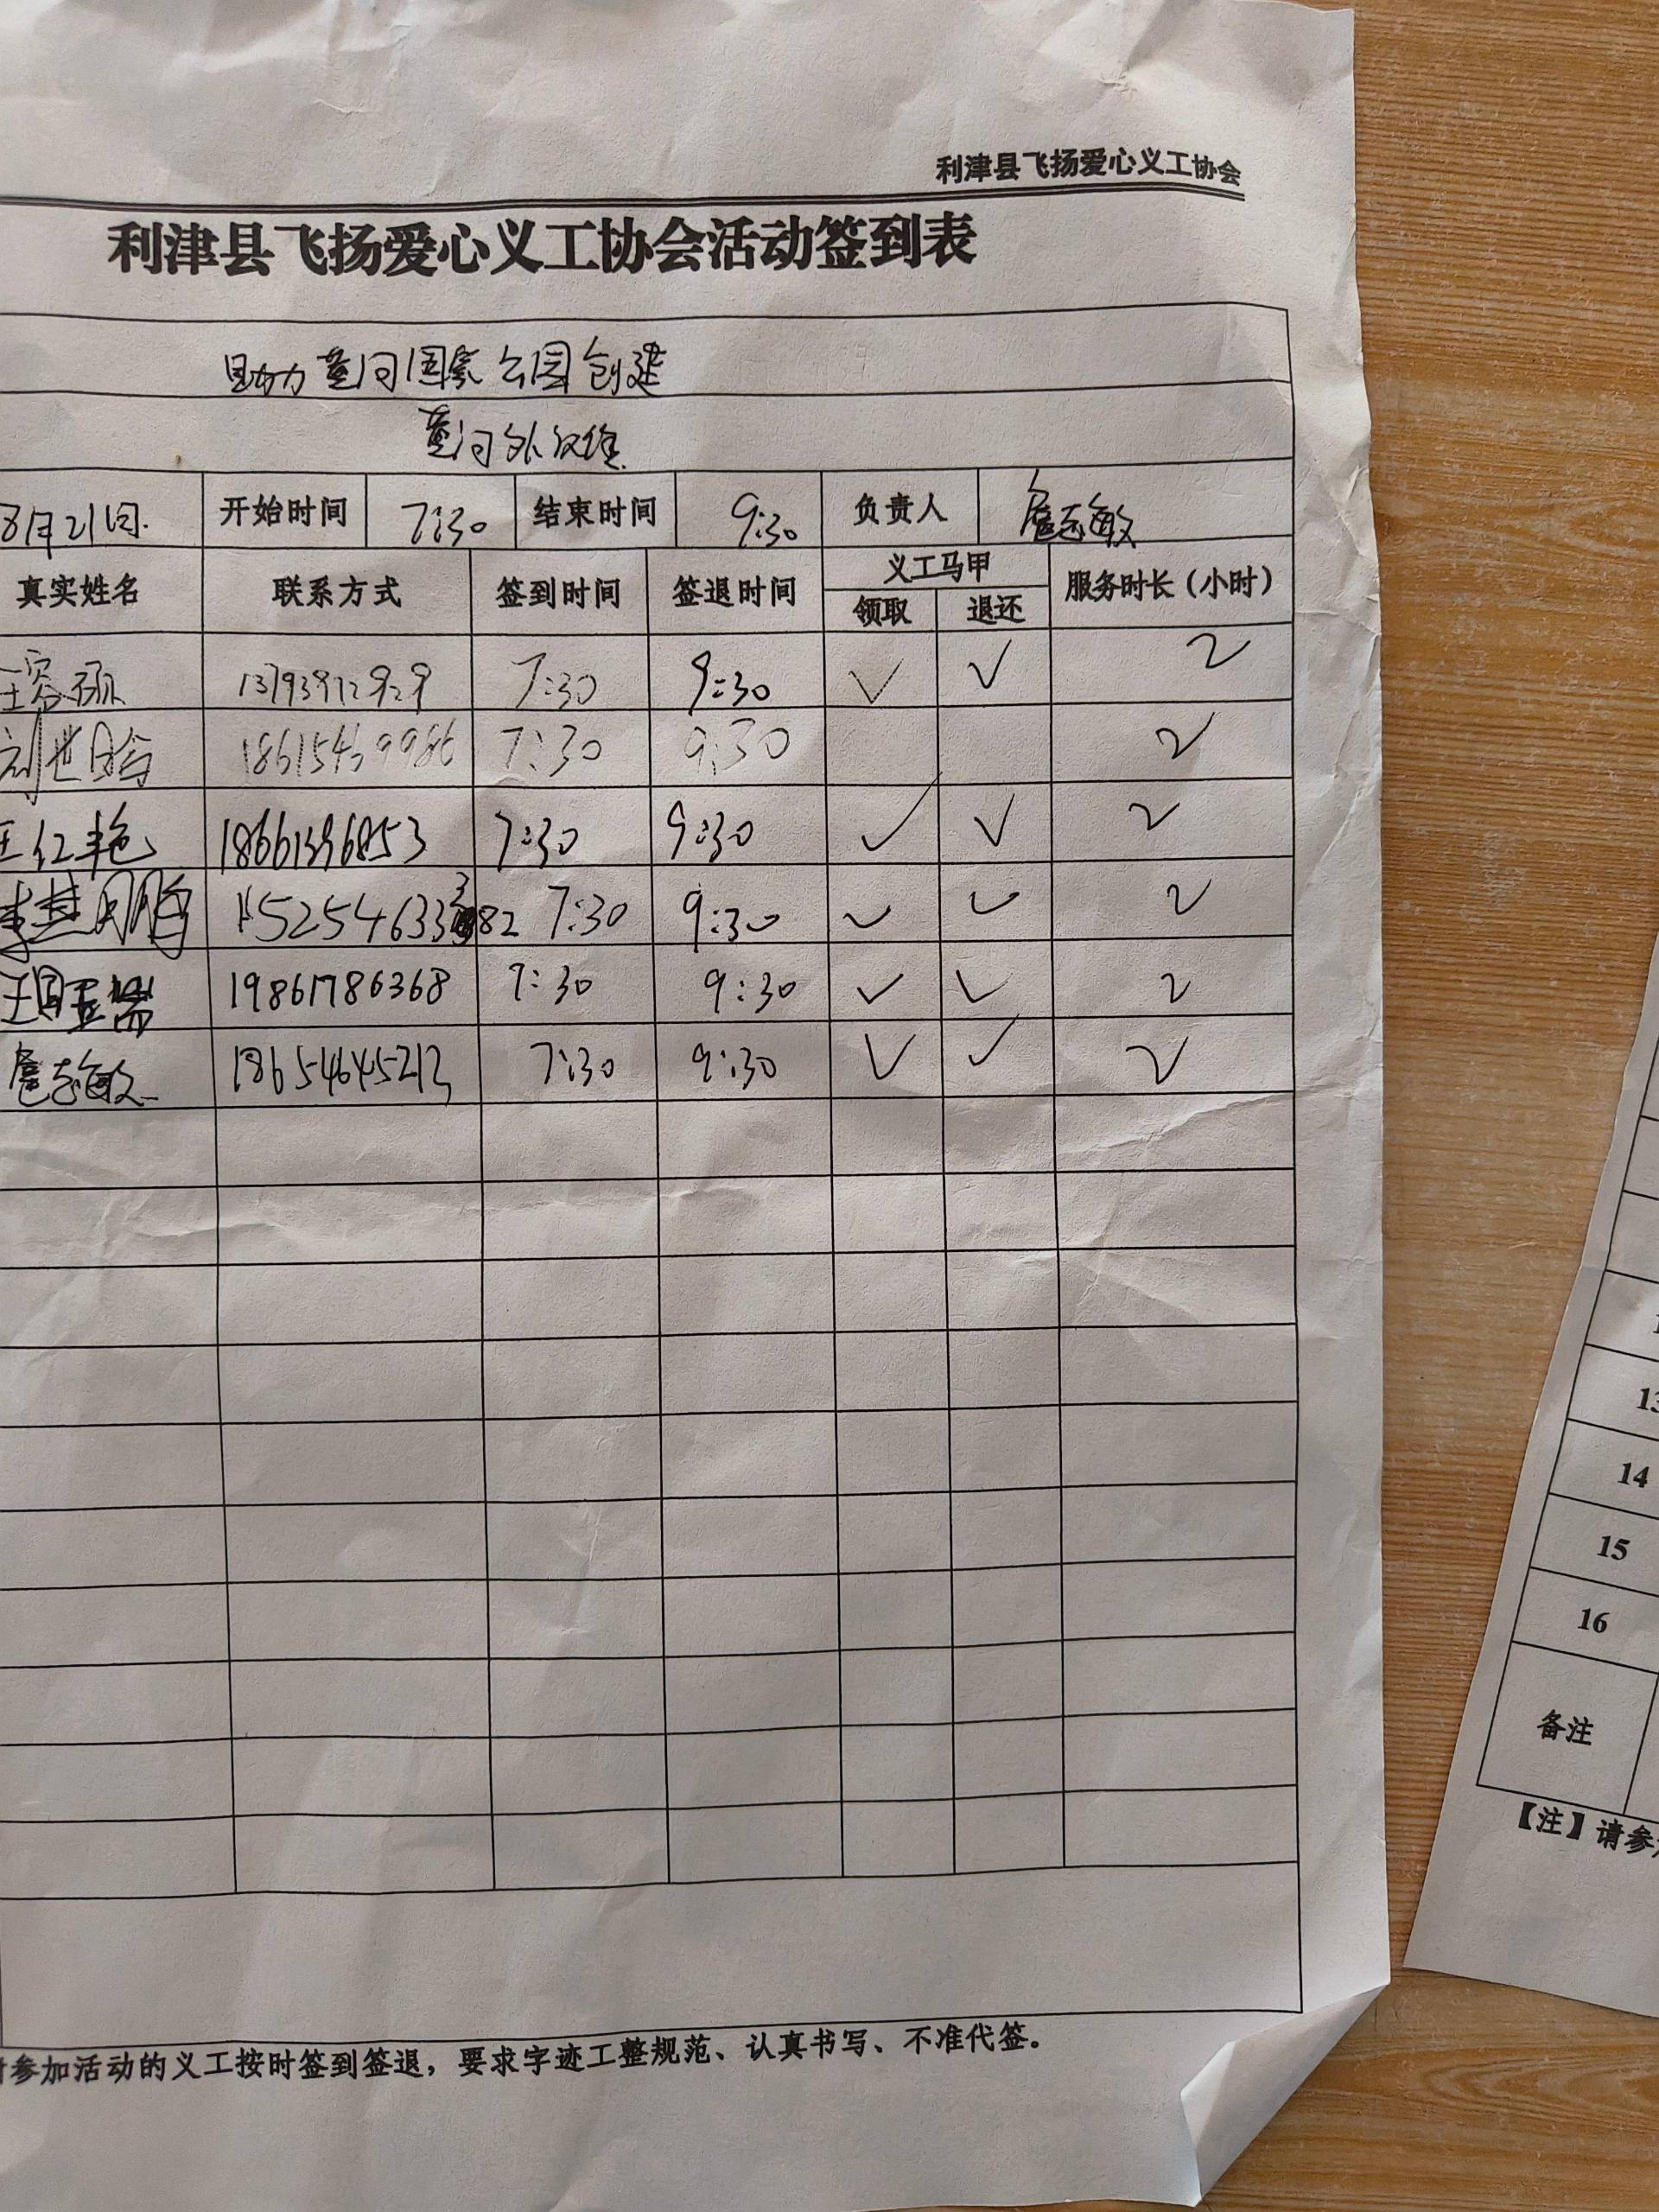 利津县飞扬爱心义工协会
利津县飞扬爱心义工协会活动签到表
助力黄河国家公园创建
黄河外
8月21日. 开始时间 7:30 结束时间 9:30 负责人
真实姓名 联系方式 签到时间 签退时间 义工马甲 服务时长（小时）
领取 退还
7:30 9:30 √ √ 2
刘世晗 18615469986 7:30 9:30 2
王红艳 18661396853 7:30 9:30 √ √ 2
7:30 9:30 √ √ 2
19861786368 7:30 9:30 √ √ 2
18654645213 7:30 9:30 √ √ 2
参加活动的义工按时签到签退，要求字迹工整规范、认真书写、不准代签。
14
15
16
备注
【注】请参